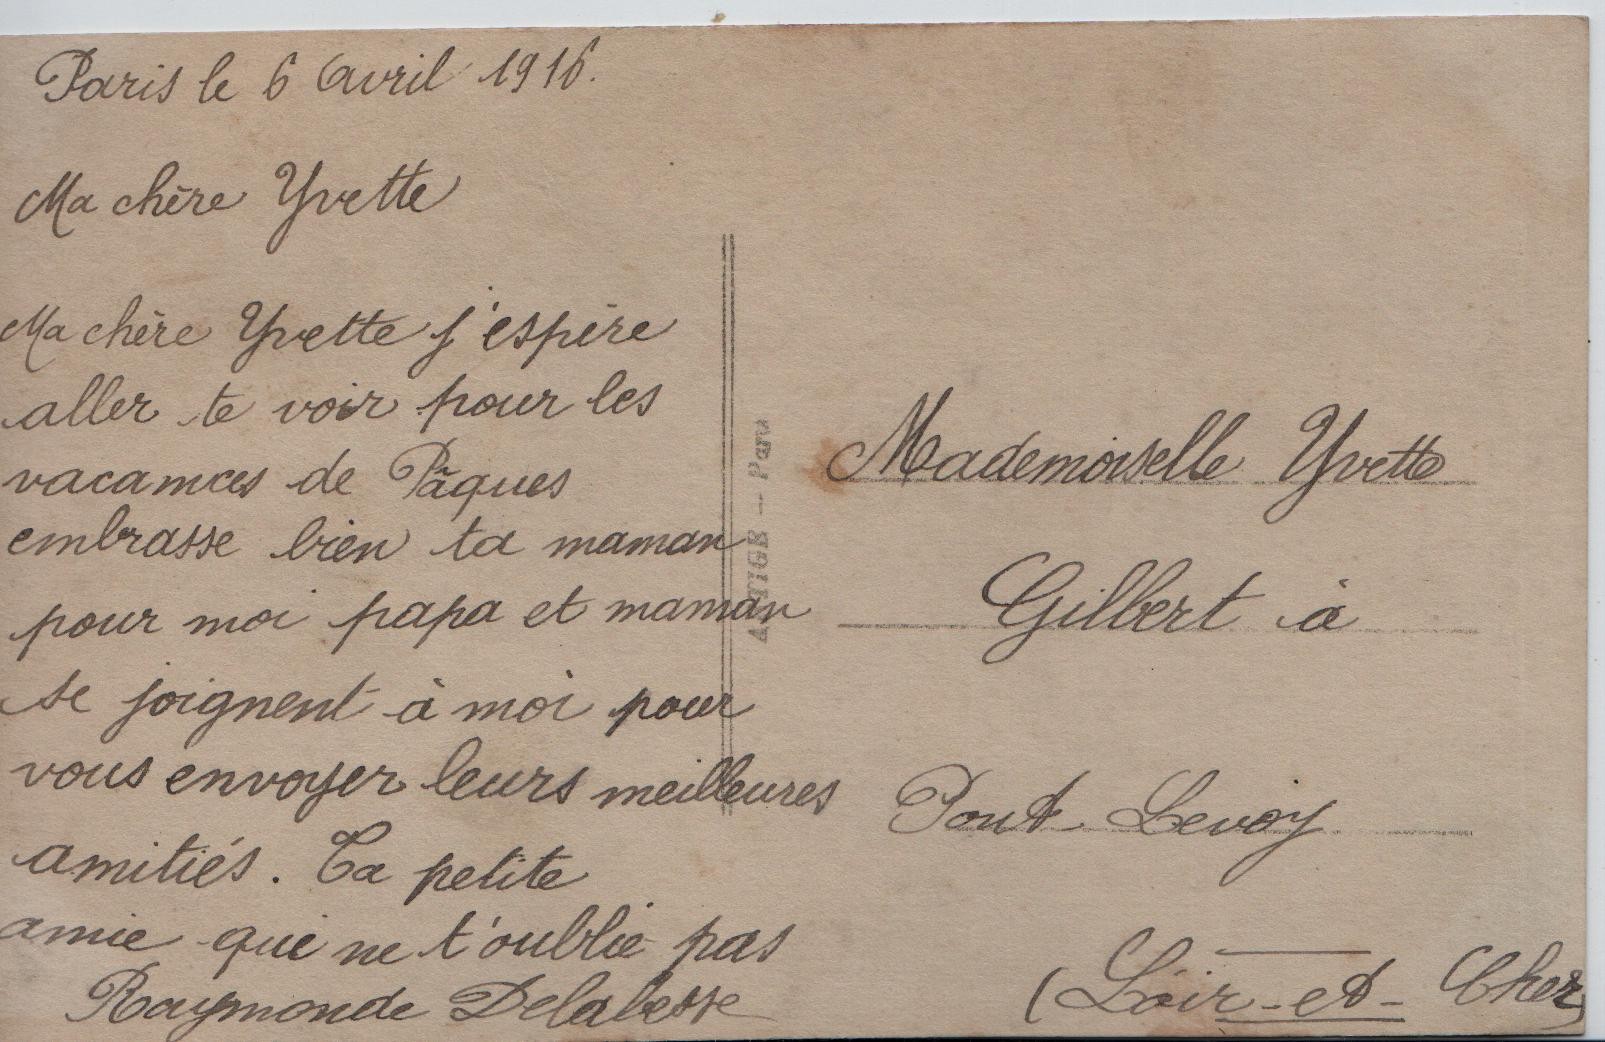 Paris le 6 Avril 1916.
Ma chère Yvette
Ma chère Yvette j'espère
aller te voir pour les
vacances de Pâques
embrasse bien ta maman
pour moi papa et maman
se joignent à moi pour
vous envoyer leurs meilleures
amitiés. Ta petite
amie qui ne t'oublie pas
Raymonde Delabesse
Paris
Mademoiselle Yvette
Gilbert à
Pont Levoy
(Loir-et-Cher)